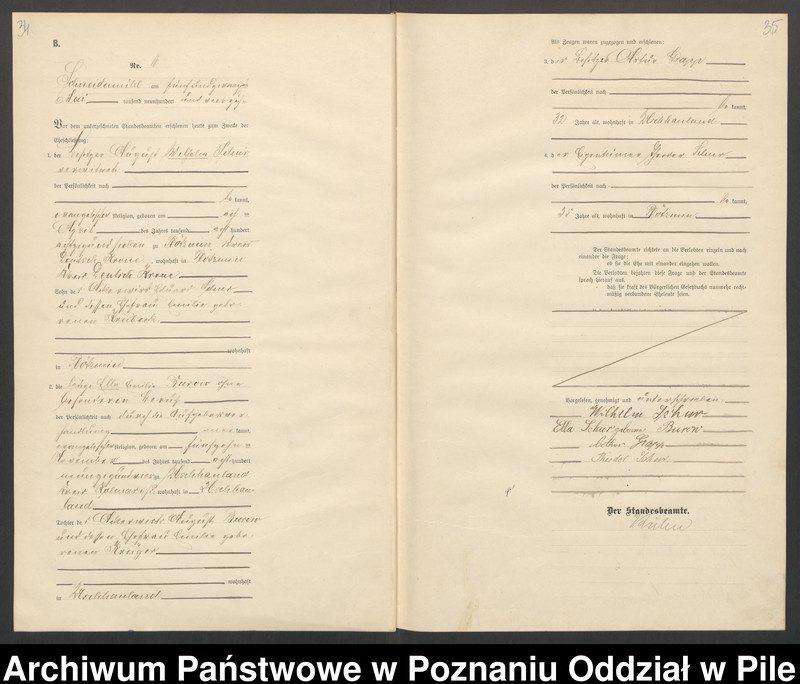 34
B.
Nr. 11
Schneidemühl am fünfundzwanzig
Mai tausend neunhundert und vierzehn
Vor dem unterzeichneten Standesbeamten erschienen heute zum Zwecke der
Eheschließung:
1. der Besitzer August Wilhelm Schur
der Persönlichkeit nach
be kannt,
evangelischer Religion, geboren am acht=
April des Jahres tausend acht hundert
achtzigundsieben zu Röhrin Kreis
Deutsch Krone, wohnhaft in
Kreis Deutsch Krone
Sohn des Ackerwirts Eduard Schur
und dessen Ehefrau Emilie gebo=
renen
wohnhaft
in
2. die ledige Ella Emilie Burow ohne
besonderen Beruf
der Persönlichkeit nach durch die Aufgebotsver=
handlung kannt,
evangelischer Religion, geboren am fünfzehn=
November des Jahres tausend acht hundert
neunzigundvier
Kreis Kolmar i/P., wohnhaft in
land
Tochter des Ackerwirts August Burow
und dessen Ehefrau Emilie gebo=
renen Krüger
wohnhaft
in
35
Als Zeugen waren zugezogen und erschienen:
3. der Besitzer Artur
der Persönlichkeit nach
be kannt,
32 Jahre alt, wohnhaft in
4. der Eigentümer Schur
der Persönlichkeit nach
be kannt,
35 Jahre alt, wohnhaft in
Der Standesbeamte richtete an die Verlobten einzeln und nach
einander die Frage:
ob sie die Ehe mit einander eingehen wollen.
Die Verlobten bejahten diese Frage und der Standesbeamte
sprach hierauf aus,
daß sie kraft des Bürgerlichen Gesetzbuchs nunmehr recht-
mäßig verbundene Eheleute seien.
Vorgelesen, genehmigt und unterschrieben
Wilhelm Schur
Ella Schur geborene Burow
Arthur
Schur
Der Standesbeamte.
Archiwum Państwowe w Poznaniu Oddział w Pile